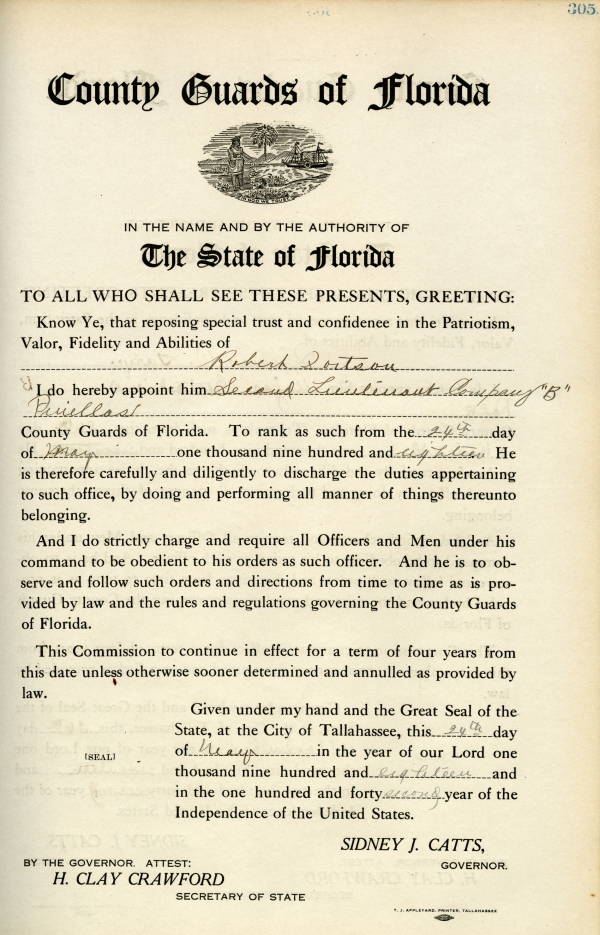 305
County Guards of Florida
IN GOD WE TRUST
IN THE NAME AND BY THE AUTHORITY OF
The State of Florida
TO ALL WHO SHALL SEE THESE PRESENTS, GREETING:
Know Ye, that reposing special trust and confidence in the Patriotism,
Valor, Fidelity and Abilities of
Robert
I do hereby appoint him Second Lieutenant Company "B"
Pinellas
County Guards of Florida. To rank as such from the 24th day
of May one thousand nine hundred and eighteen He
is therefore carefully and diligently to discharge the duties appertaining
to such office, by doing and performing all manner of things thereunto
belonging.
And I do strictly charge and require all Officers and Men under his
command to be obedient to his orders as such officer. And he is to ob-
serve and follow such orders and directions from time to time as is pro-
vided by law and the rules and regulations governing the County Guards
of Florida.
This Commission to continue in effect for a term of four years from
this date unless otherwise sooner determined and annulled as provided by
law.
Given under my hand and the Great Seal of the
State, at the City of Tallahassee, this 24th day
of May in the year of our Lord one
[SEAL]
thousand nine hundred and eighteen and
in the one hundred and forty second year of the
Independence of the United States.
SIDNEY J. CATTS,
GOVERNOR.
BY THE GOVERNOR. ATTEST:
H. CLAY CRAWFORD
SECRETARY OF STATE
T. J. APPLEYARD, PRINTER, TALLAHASSEE